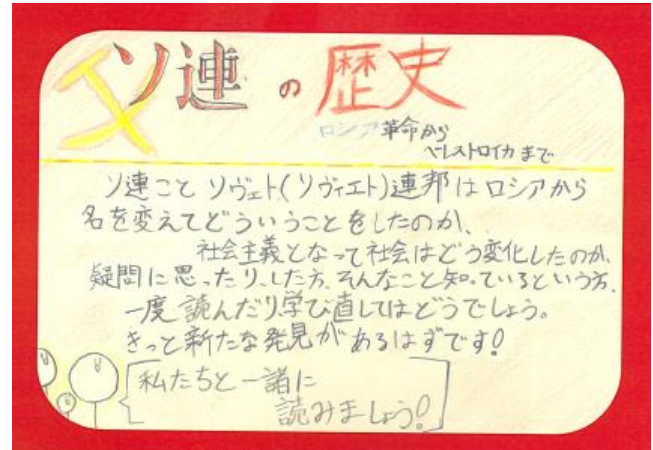 ソ連の歴史
ロシア革命から
ペレストロイカまで
ソ連こと ソヴェト(ソヴィエト)連邦はロシアから
名を変えてどういうことをしたのか、
社会主義となって社会はどう変化したのか、
疑問に思ったり、した方、そんなこと知っているという方、
一度読んだり学び直してはどうでしょう。
きっと新たな発見があるはずです!
私たちと一諸に
読みましょう!